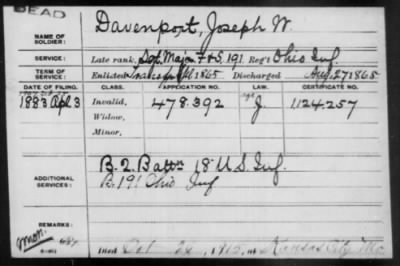 DEAD
NAME OF SOLDIER: Davenport, Joseph W.
SERVICE: Late rank, Sgt. Major F&S, 191 Reg't Ohio Inf.
TERM OF SERVICE: Enlisted 1865 Discharged Aug. 27 1865
DATE OF FILING. CLASS. APPLICATION NO. LAW. CERTIFICATE NO.
1883 Apl 3 Invalid, 478.392 J. 1124.257
Widow,
Minor,
ADDITIONAL SERVICES: B. 2. Battn 18 U.S. Inf.
B. 191 Ohio Inf
REMARKS:
Died Oct at Kansas City Mo